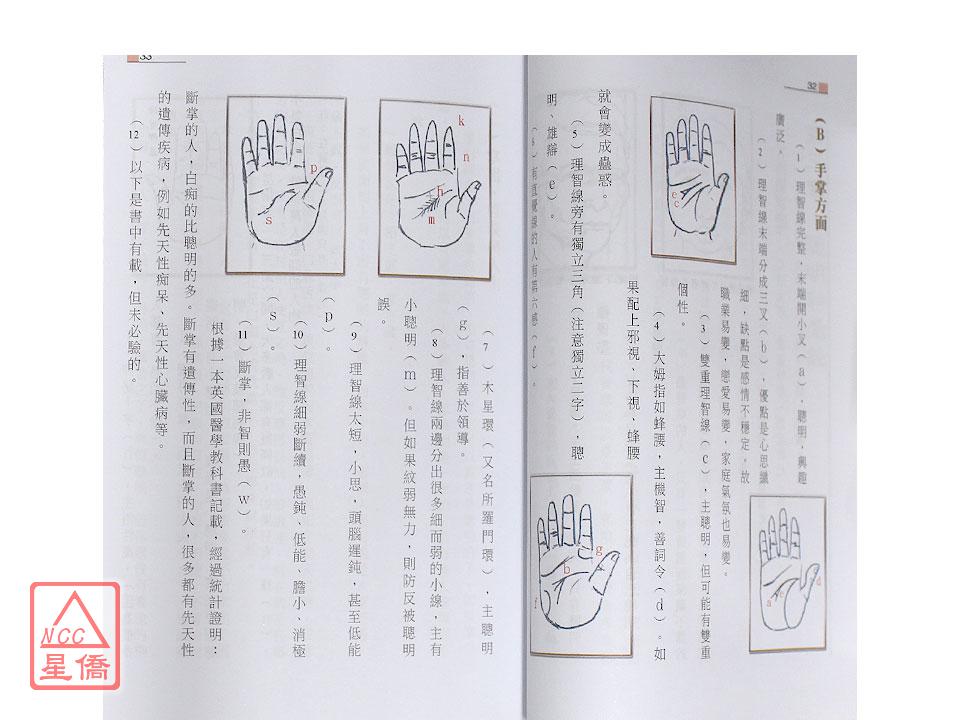 32
(B)手掌方面
(1)理智線完整,末端開小叉(a),聰明,興趣
廣泛。
(2)理智線末端分成三叉(b),優點是心思纖
細,缺點是感情不穩定,故
職業易變,戀愛易變,家庭氣氛也易變。
(3)雙重理智線(c),主聰明,但可能有雙重
個性。
(4)大姆指如蜂腰,主機智,善詞令(d)。如
果配上邪視、下視、蜂腰
就會變成蠱惑。
(5)理智線旁有獨立三角(注意獨立二字),聰
明、雄辯(e)。
(6)有直覺線的人有第六感(f)。
e
c
a
e
d
g
b
f
33
(7)木星環(又名所羅門環),主聰明
(g),指善於領導。
(8)理智線兩邊分出很多細而弱的小線,主有
小聰明(m)。但如果紋弱無力,則防反被聰明
誤。
(9)理智線太短,小思,頭腦遲鈍,甚至低能
(p)。
(10)理智線細弱斷續,愚鈍、低能、膽小、消極
(s)。
(11)斷掌,非智則愚(w)。
根據一本英國醫學教科書記載,經過統計證明:
斷掌的人,白痴的比聰明的多。斷掌有遺傳性,而且斷掌的人,很多都有先天性
的遺傳疾病,例如先天性痴呆、先天性心臟病等。
(12)以下是書中有載,但未必驗的。
k
n
h
m
p
s
NCC
星僑